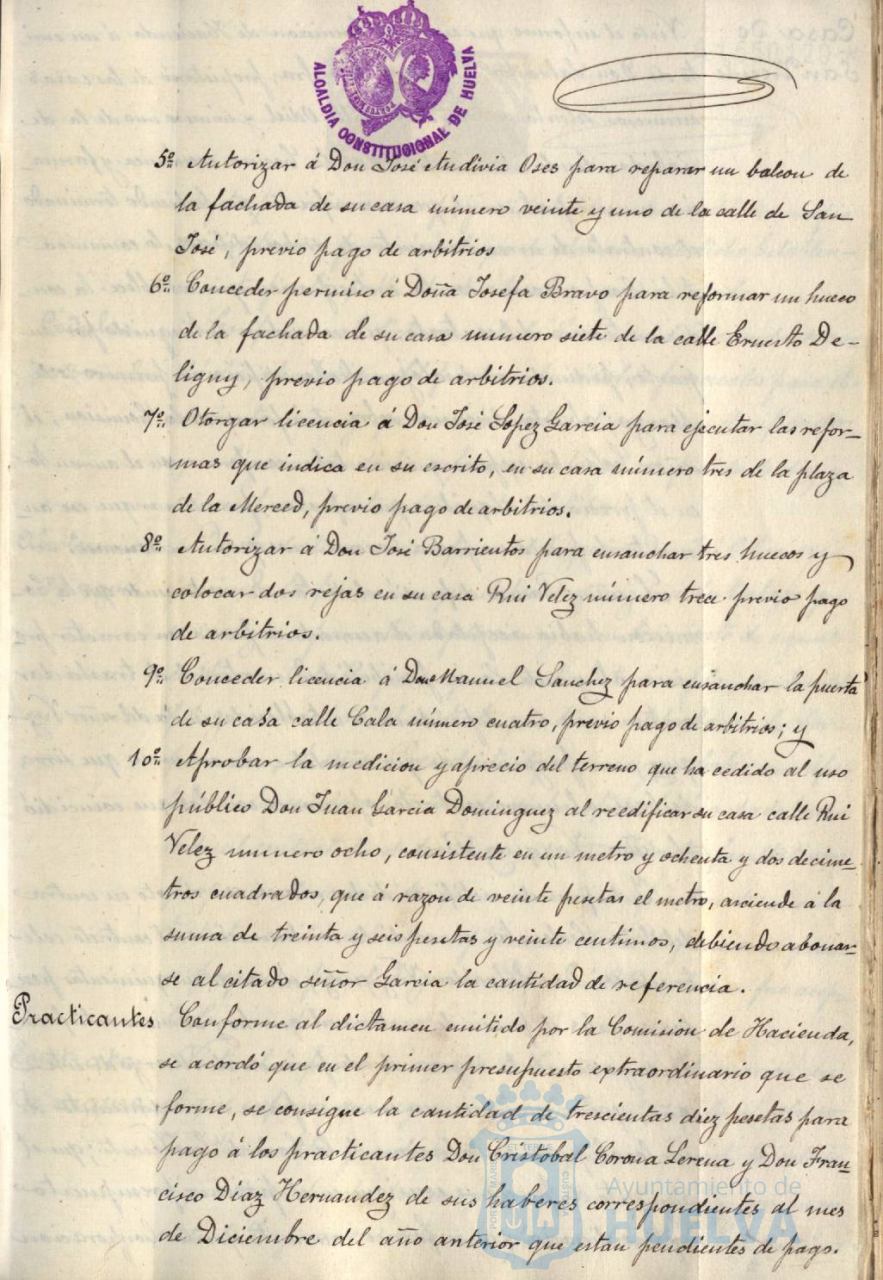 ALCALDIA CONSTITUCIONAL DE HUELVA
5º Autorizar á Don José Audivia Oses para reparar un balcon de
la fachada de su casa número veinte y uno de la calle de San
José, previo pago de arbitrios
6º Conceder permiso á Doña Josefa Bravo para reformar un hueco
de la fachada de su casa numero siete de la calle Ernesto De-
ligny, previo pago de arbitrios.
7º Otorgar licencia á Don José Lopez Garcia para ejecutar las refor-
mas que indica en su escrito, en su casa número tres de la plaza
de la Merced, previo pago de arbitrios.
8º Autorizar á Don José Barrientos para ensanchar tres huecos y
colocar dos rejas en su casa Rui Velez número trece previo pago
de arbitrios.
9º Conceder licencia á Don Manuel Sanchez para ensanchar la puerta
de su casa calle Cala número cuatro, previo pago de arbitrios; y
10º Aprobar la medicion y aprecio del terreno que ha cedido al uso
público Don Juan Garcia Dominguez al reedificar su casa calle Rui
Velez numero ocho, consistente en un metro y ochenta y dos decime-
tros cuadrados, que á razon de veinte pesetas el metro, asciende á la
suma de treinta y seis pesetas y veinte centimos, debiendo abonar-
se al citado señor Garcia la cantidad de referencia.
Practicantes Conforme al dictamen emitido por la Comision de Hacienda,
se acordó que en el primer presupuesto extraordinario que se
forme, se consigue la cantidad de trescientas diez pesetas para
pago á los practicantes Don Cristobal Corona Lerena y Don Fran-
cisco Diaz Hernandez de sus haberes correspondientes al mes
de Diciembre del año anterior que estan pendientes de pago.
Ayuntamiento de
HUELVA